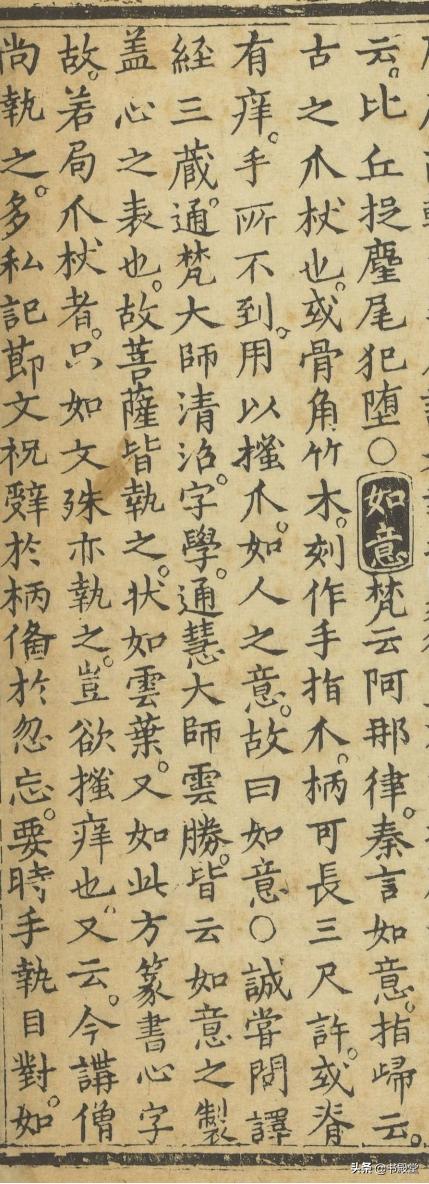 云。比丘捉麈尾犯墮○如意梵云阿那律。秦言如意。指歸云。
古之爪杖也。或骨角竹木。刻作手指爪。柄可長三尺許。或脊
有痒。手所不到。用以搔爪。如人之意。故曰如意○誠嘗問譯
経三蔵通梵大師清沼。字學通慧大師雲勝。皆云如意之製
盖心之表也。故菩薩皆執之。状如雲葉。又如此方篆書心字
故。若局爪杖者。只如文殊亦執之。豈欲搔痒也。又云。今講僧
尚執之。多私記莭文祝辤於柄俻於忽忘。要時手執目對。如
头条 @书殿堂